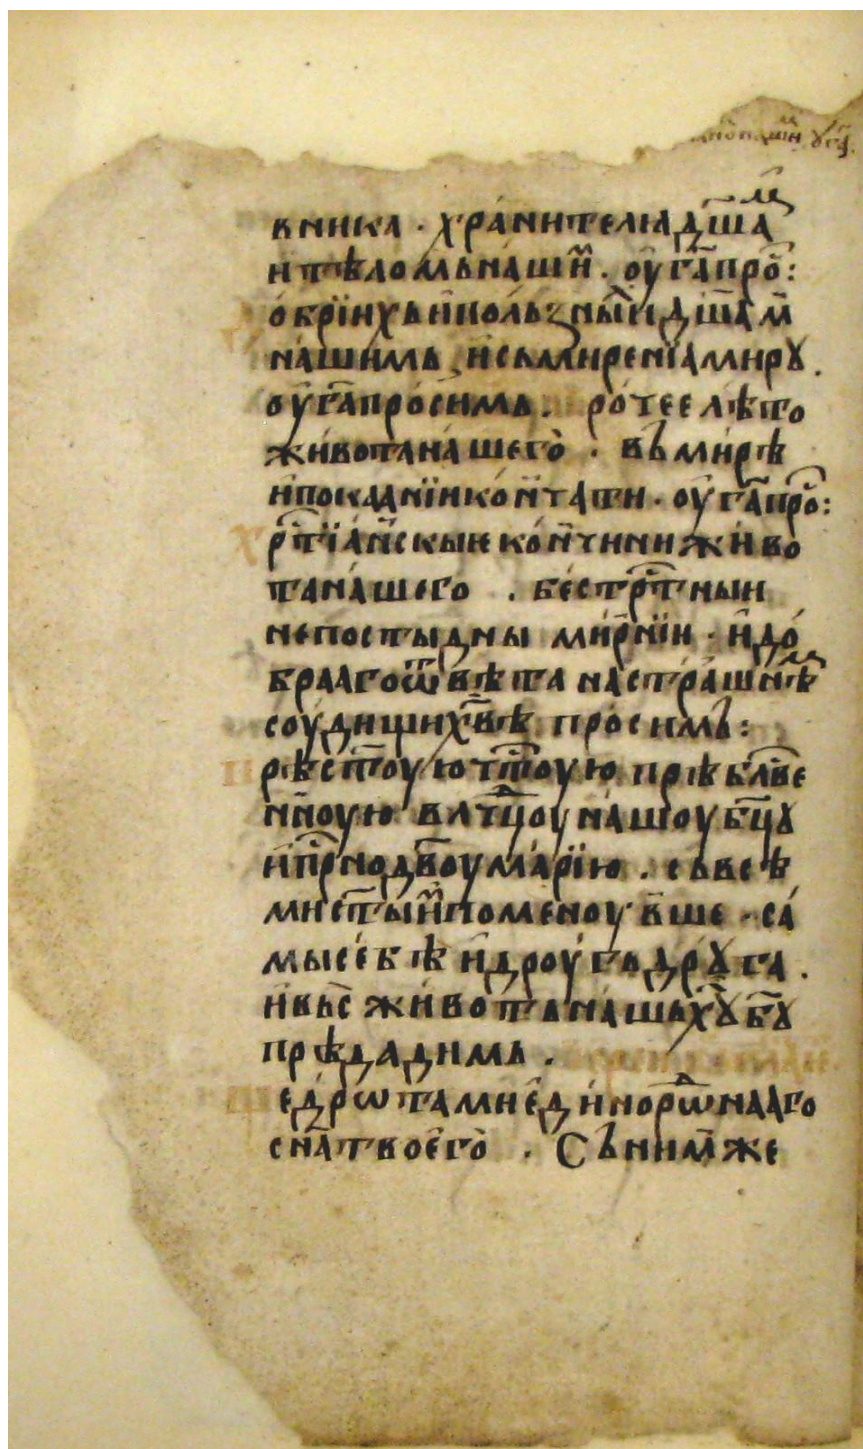 вника · хранителꙗ дш҃аⷨ
и тѣлѡмь нашиⷨ · оу г҃а проⷭ҇:
обрїихь и полъзныⷯ д҃шамⷨ
нашимь, и сьмиренїа мирꙋ.
оу г҃а просимь · рочее лѣто
живота нашего · вь мирѣ
и покаанїи конⷱтати · оу г҃а проⷭ҇:
рⷭ҇тїанскые конⷱчини живо
та нашего · бестрⷭ҇тныи
непостыдны мирнїи · и до
брааго ѿвѣта на страшнѣⷨ
соудищи хв҃ѣ просимь:
рѣст҃оую чт҃оую прѣбл҃ве
нноую влⷣчцоу нашоу бц҃ꙋ
и прⷭ҇нодв҃оу марїю · сь всѣ
ми ст҃ыиⷨ поменоувше · са
мы себѣ и дроугь дрꙋга ·
и вьс живⷪть нашь хꙋ҃ бꙋ҃
прѣдадимь ·
едрѡтами единороⷣнааго
сн҃а твоего · Сь нимⷤже